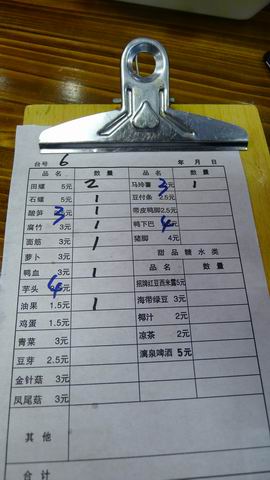 台号 6 年 月 日
品名 数量 品名 数量
田螺 5元 2 马玲薯 3元 1
石螺 5元 1 豆付条 2.5元
酸笋 3元 1 带皮鸭脚 2.5元
腐竹 3元 1 鸭下巴 4元
面筋 3元 1 猪脚 4元
萝卜 3元 甜品糖水类
鸭血 3元 1 品名 数量
芋头 4元 招牌红豆西米露 5元
油果 1.5元 1 海带绿豆 3元
鸡蛋 1.5元 椰汁 2元
青菜 3元 凉茶 2元
豆芽 2.5元 漓泉啤酒 5元
金针菇 3元
凤尾菇 3元
其他
合计